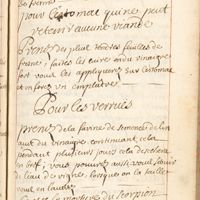 pour l'estomac qui ne peut
retenir aucune viande
Prenez des plus tendres feuilles de
frene, faites les cuire avec vinaigre
fort vous les appliquerez sur l'estomac
et en ferez un emplatre
Pour les verrues
prenez de la farine de semence de lin
avec du vinaigre continuant cela
pendant plusieurs jours cela tombera
en bref; vous pouvez aussi vous servir
de l'eau de vignes, lorsque on la taille
vous en laudez
la morsure du scorpion